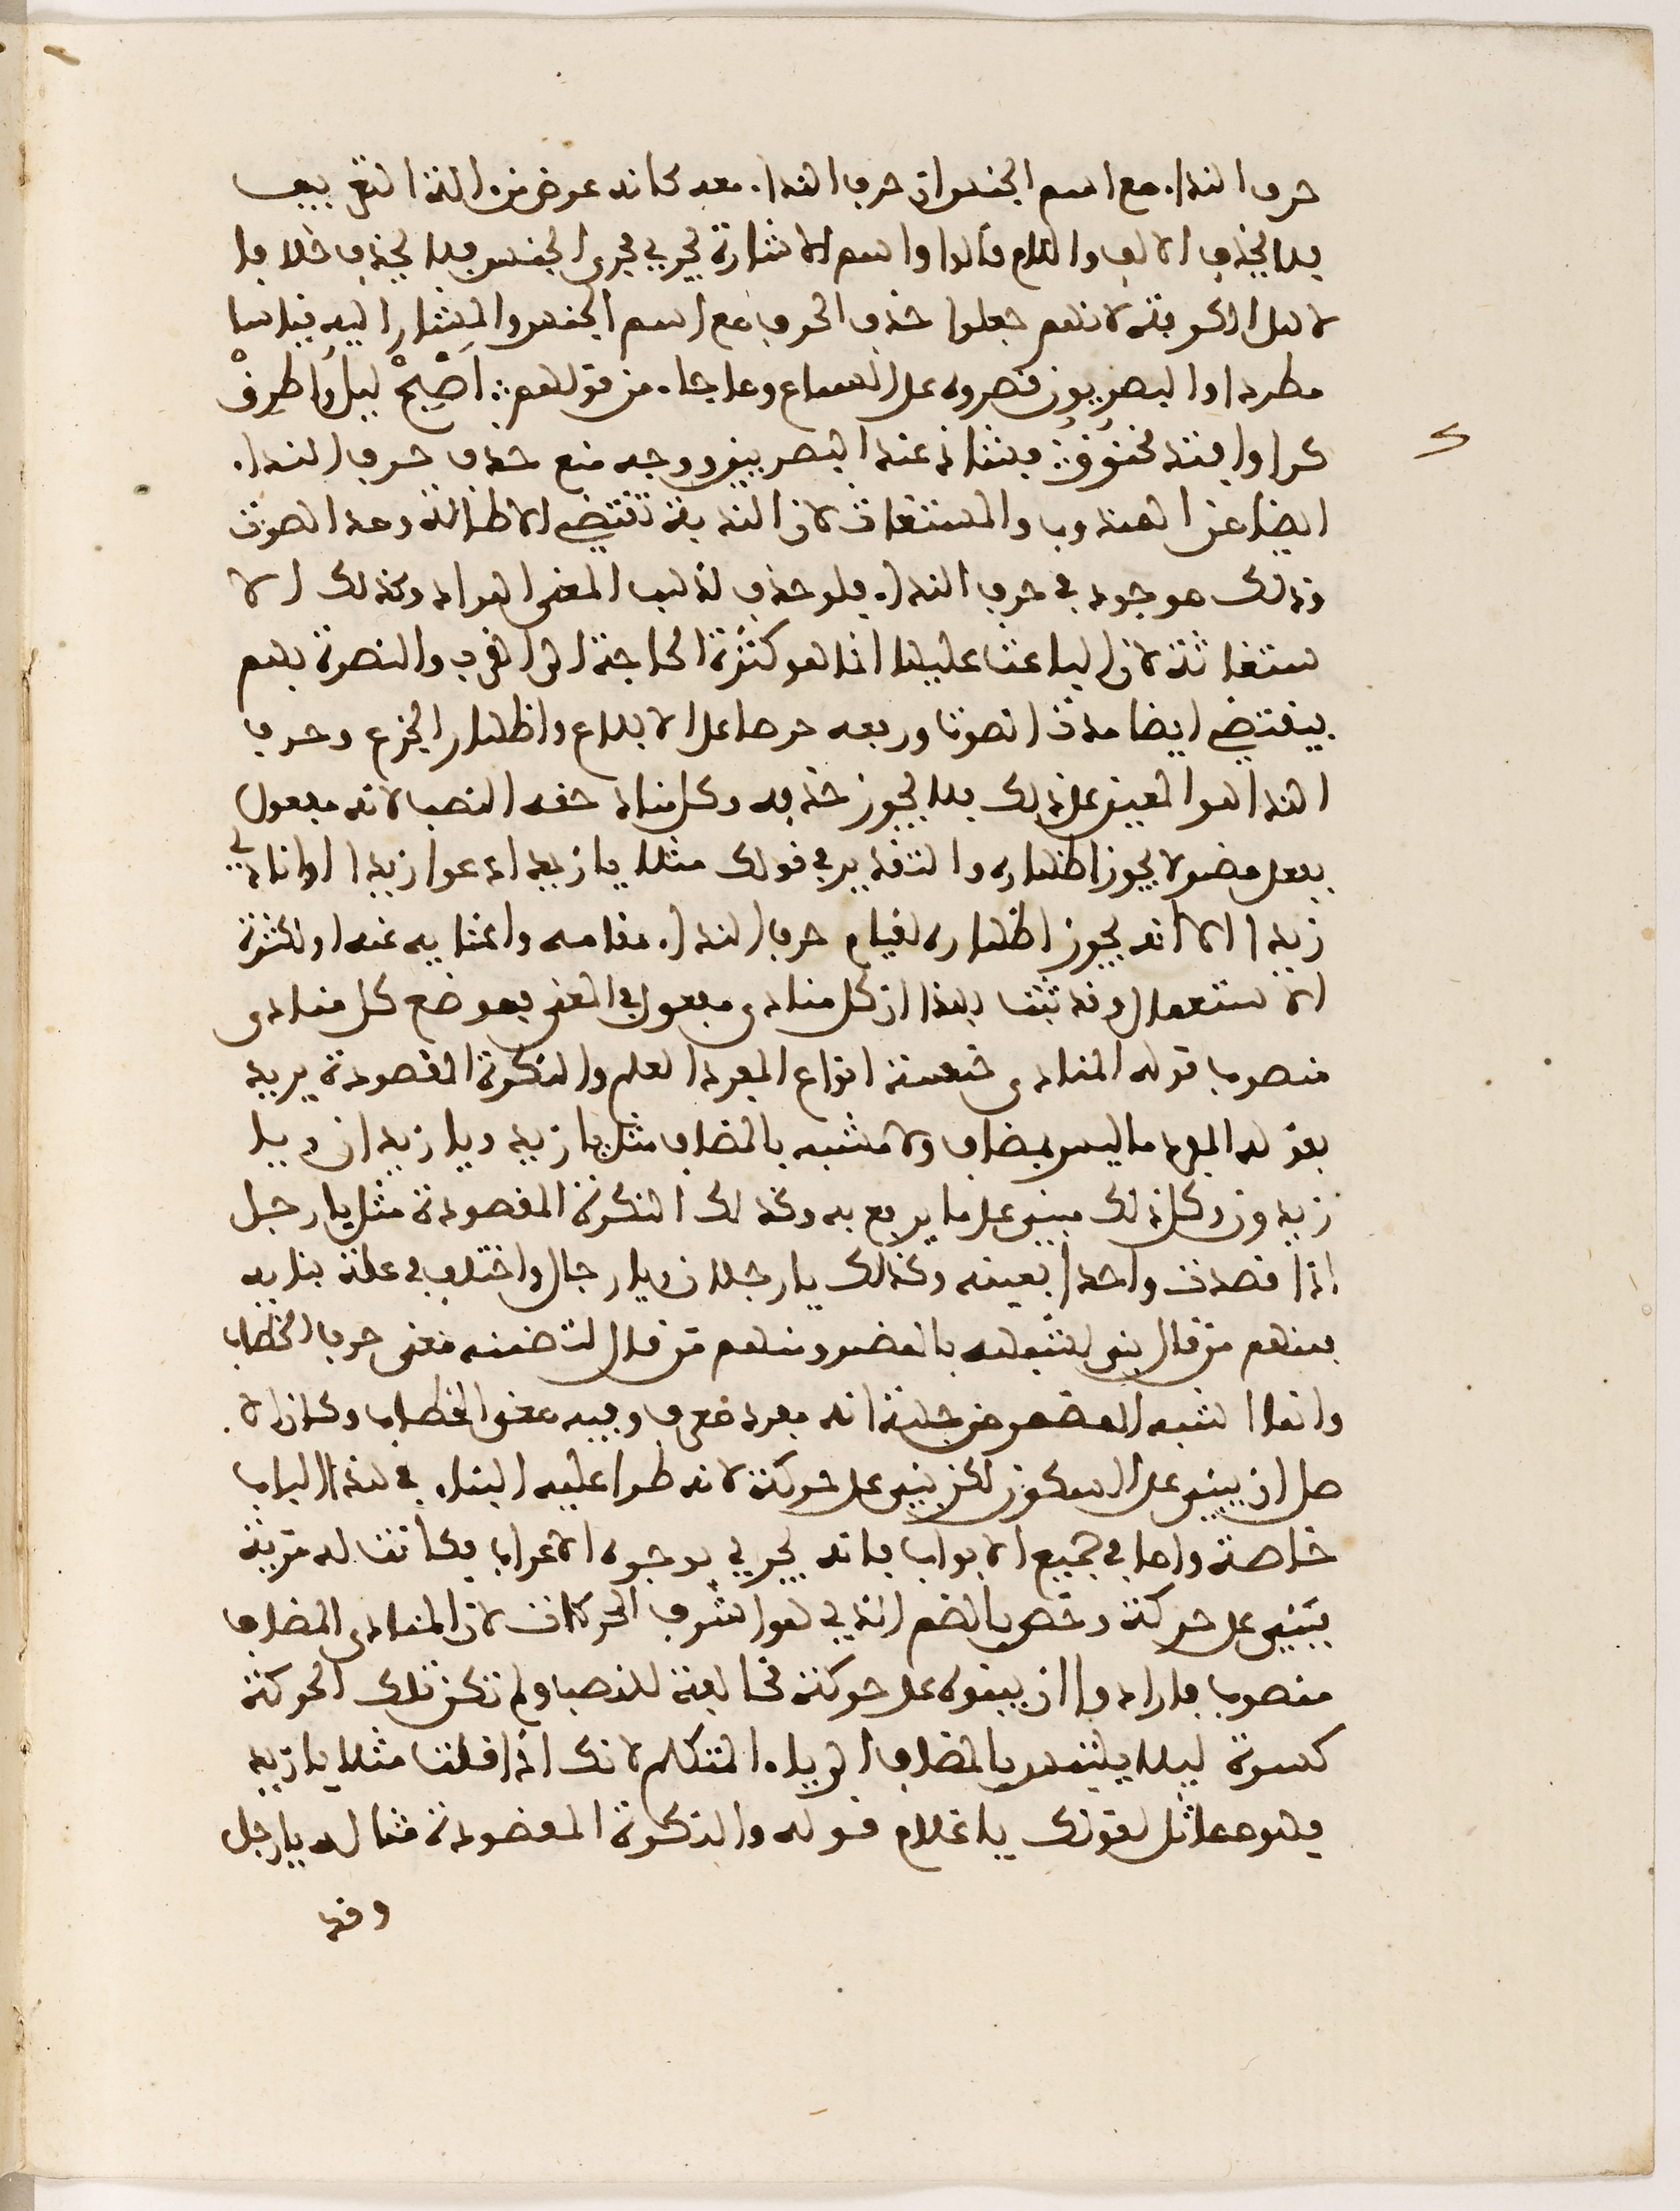 حرف النداء مع اسم الجنس لان حرف النداء معه كانه عوض من الة التعريف
فلا يحذف الالف واللام قالوا واسم الاشارة يجري مجرى الجنس فلا يحذف خلافا
لاهل الكوفة لانهم جعلوا حذف الحرف مع اسم الجنس والمشار اليه قياسا
مطردا والبصريون قصروه على السماع وما جاء من قولهم: اَصْبِحْ ليل وأطرِقْ
كرا وافتد مخنوق: فشاذ عند البصريين ووجه منع حذف حرف النداء
ايضا من المندوب والمستغاث لان الندبة تقتضي الاطالة ومد الصوت
وذلك موجود في حرف النداء فلو حذف لذهب المعنى المراد وكذلك الا
ستغاثة لان الباعث عليها انما هو كثرة الحاجة الى الغوث والنصرة فهم
يقتضي ايضا مدة الصوت ورفعه حرصا على الابلاغ واظهار الجزع وحرف
النداء هو المعين على ذلك فلا يجوز حذفه وكل مناد حقه النصب لانه مفعول
بفعل مضمر لا يجوز اظهاره والتقدير في قولك مثلا يا زيد ادعوا زيدا او انادي
زيدا الا انه يجوز اظهاره لقيام حرف النداء مقامه واغنايه عنه او لكثرة
الاستعمال وقد ثبت بهذا ان كل منادى مفعول في المعنى فموضع كل منادى
منصوب قوله المنادى خمسة انواع المفرد العلم والنكرة المقصودة يريد
بقوله المفرد ما ليس بمضاف ولا مشبه بالمضاف مثل يا زيد ويا زيدان ويا
زيدون وكل ذلك مبني على ما يرفع به وكذلك النكرة المقصودة مثل يا رجل
اذا قصدت واحدا بعينه وكذلك يا رجلان ويا رجال واختلف في علة بنايه
فمنهم من قال بني لشبهه بالمضمر ومنهم من قال لتضمنه معنى حرف الخطاب
وانما اشبه المضمر من جهة انه مفرد معرف وفيه معنى الخطاب وكان الا
صل ان يبنى على السكون لكن بني على حركة لانه طرا عليه البناء في هذا الباب
خاصة واما في جميع الابواب فانه يجري بوجوه الاعراب فكانت له مزية
فبني على حركة وخص بالضم الذي هو اشرف الحركات لان المنادى المضاف
منصوب فارادوا ان يبنوه على حركة مخالفة للنصب ولم تكن تلك الحركة
كسرة ليلا يلتبس بالمضاف الى ياء المتكلم لانك اذا قلت مثلا يا زيد
فهو مماثل لقولك يا غلام قوله والنكرة المقصودة مثاله يا رجل
وقد